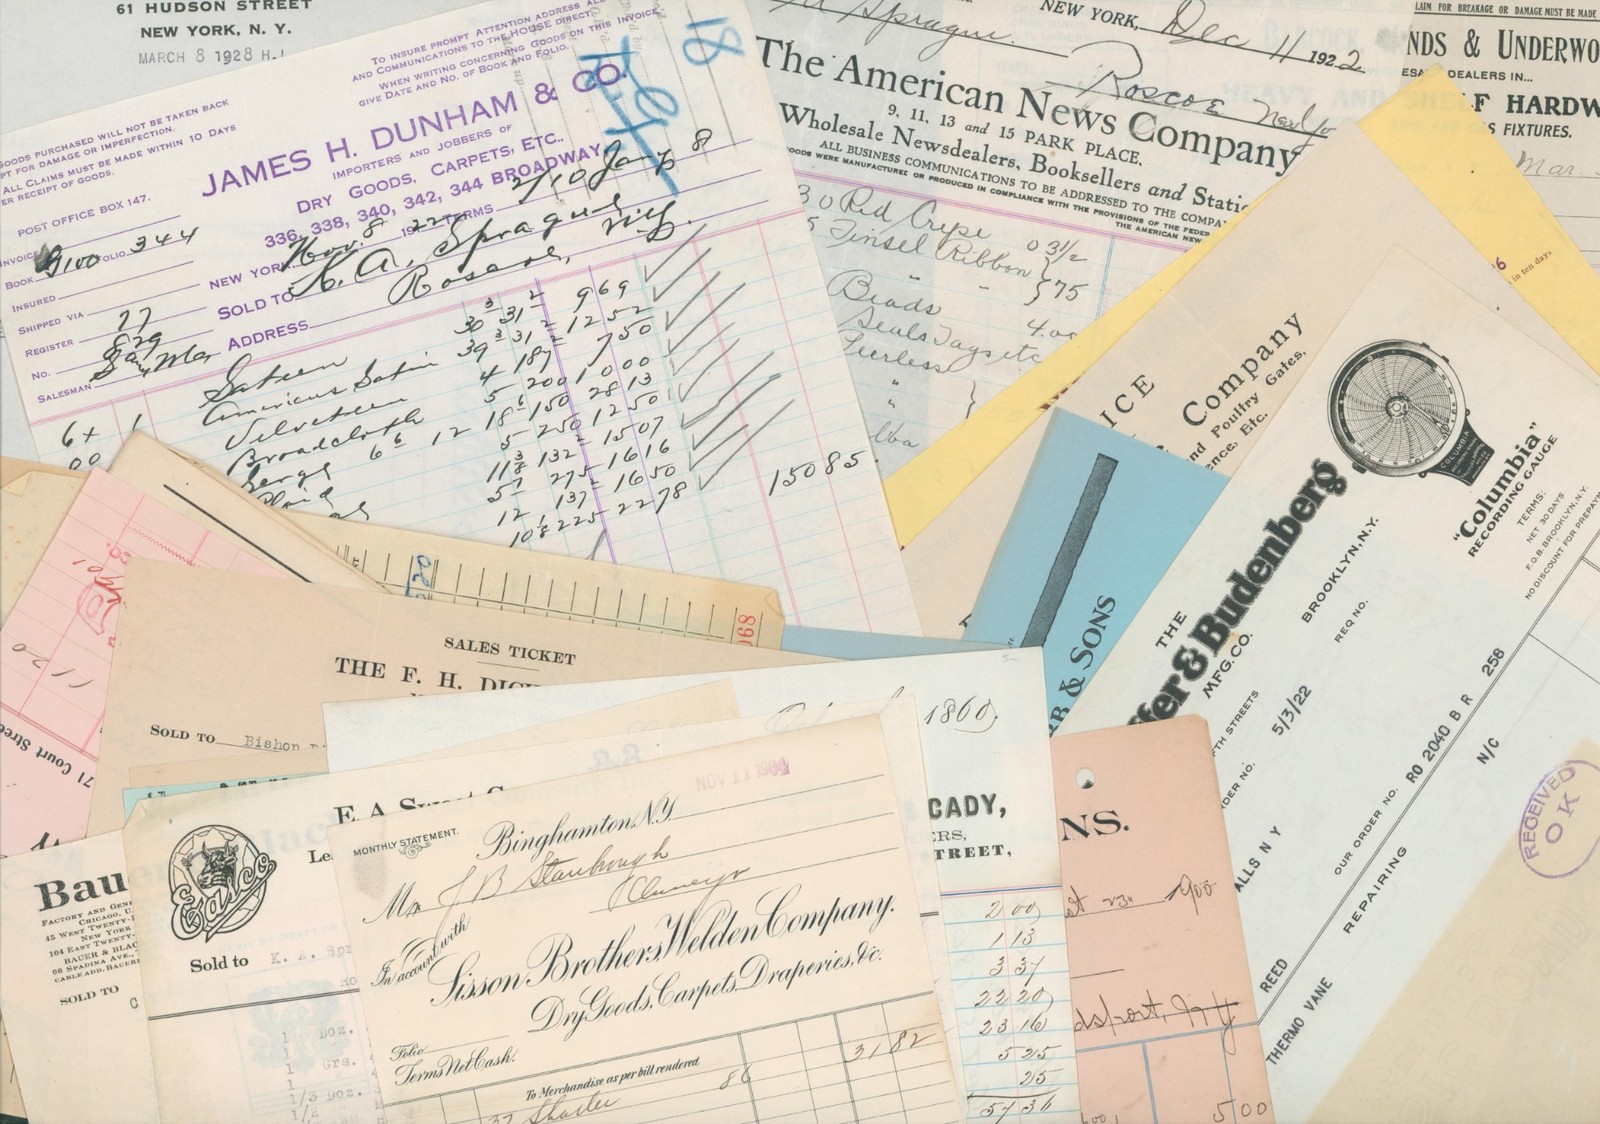 61 HUDSON STREET
NEW YORK, N. Y.
MARCH 8 1928 H.I.
TO INSURE PROMPT ATTENTION ADDRESS ALL
AND COMMUNICATIONS TO THE HOUSE DIRECT.
WHEN WRITING CONCERNING GOODS ON THIS INVOICE
GIVE DATE AND NO. OF BOOK AND FOLIO.
18
GOODS PURCHASED WILL NOT BE TAKEN BACK
PT FOR DAMAGE OR IMPERFECTION.
ALL CLAIMS MUST BE MADE WITHIN 10 DAYS
ER RECEIPT OF GOODS.
JAMES H. DUNHAM & CO.
IMPORTERS AND JOBBERS OF
DRY GOODS, CARPETS, ETC.
336, 338, 340, 342, 344 BROADWAY,
POST OFFICE BOX 147.
INVOICE
BOOK 9100 FOLIO 344
INSURED
SHIPPED VIA
REGISTER 77
No. 829
SALESMAN
NEW YORK, Nov. 8 1922 TERMS 2/10 Jany 8
SOLD TO K. A. Sprague
ADDRESS Roscoe, N.Y.
Sateen 30 3 31 2 969
Americus Satin 39 3 31 2 1252
Velveteen 4 187 750
Broadcloth 5 200 1000
Serge 6 6 12 18 6 150 2813
Plaid 5 250 1250
11 3 132 1507
275 1616
12 137 1650
10 225 2278
15085
Sprague.
NEW YORK, Dec 11 1922
Roscoe New Yo
The American News Company
9, 11, 13 and 15 PARK PLACE.
Wholesale Newsdealers, Booksellers and Statio
ALL BUSINESS COMMUNICATIONS TO BE ADDRESSED TO THE COMPA
GOODS WERE MANUFACTURED OR PRODUCED IN COMPLIANCE WITH THE PROVISIONS OF THE FEDER
THE AMERICAN NEW
30 Red Crepe 0 3½
5 Tinsel Ribbon } 75
Beads 4.00
Seals Tags etc
Peerless
LAIM FOR BREAKAGE OR DAMAGE MUST BE MADE
NDS & UNDERWO
DEALERS IN...
LF HARDW
S FIXTURES.
Mar.
in ten days
ICE
Company
nd Poultry Gates,
ence, Etc.
COLUMBIA
"Columbia"
RECORDING GAUGE
TERMS:
NET 30 DAYS
F.O.B. BROOKLYN, N.Y.
NO DISCOUNT FOR PREPAYM
THE
ffer & Budenberg
MFG. CO.
BROOKLYN, N.Y.
REQ NO.
TH STREETS
5/3/22
RDER NO.
OUR ORDER NO. RO 2040 B R 258
N/C
ALLS N Y
REPAIRING
REED
THERMO VANE
RECEIVED
OK
RB & SONS
068
71 Court Stree
SALES TICKET
THE F. H. DICK
SOLD TO Bishop
1860
CADY,
ERS,
TREET,
2 00
1 13
3 37
22 20
23 16
5 25
25
57 36
NS.
st 23. 1900
dsport, N.Y
500
Bau
FACTORY AND GENE
CHICAGO, U.
45 WEST TWENTY-
NEW YORK
104 EAST TWENTY-
BAUER & BLAC
96 SPADINA AVE.,
CABLE ADD. BAUER
SOLD TO
E. A. Sweet C
Le
Easco
Sold to K. A. Spr
1 Doz.
1 Grs.
1
1/3 Doz.
1/2
NOV 11 1904
MONTHLY STATEMENT.
Binghamton, N.Y.
Mr J B Stanbrough
In account with
Sisson Brothers, Welden Company.
Dry Goods, Carpets, Draperies, &c.
Folio
Terms Net Cash.
To Merchandise as per bill rendered
3182
86